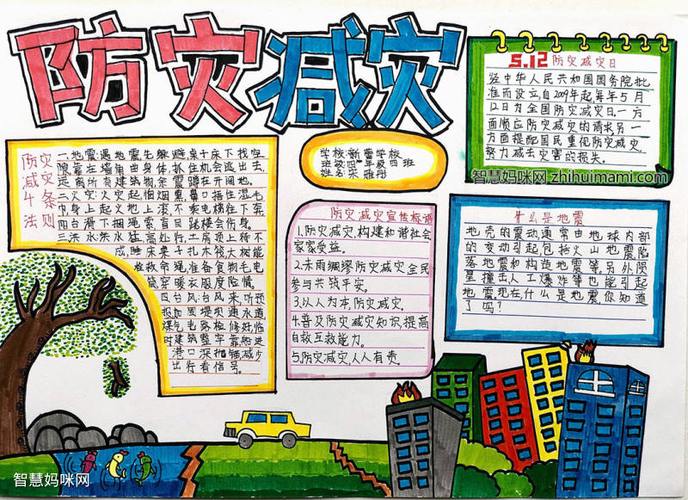 防灾减灾
5.12防灾减灾日
经中华人民共和国国务院批
准而设立自2009年起每年5月
12日为全国防灾减灾日一方
面顺应防灾减灾的请求另一
方面提配国民重花防灾减灾
努力减去灾害的损失。
智慧妈咪网 zhihuimami.com
学校:新蕾学校
班级:四年级四班
姓名:宋雅丹
防灾
减灾
4条
法则
一地震遇地震先躲避桌子床下找空
隙靠在墙角曲身体抓住机会逃出去
远离所有建筑物余震蹲在开阔地。
二火灾火灾起怕烟熏鼻口捂住湿毛
巾身上起火地上滚不乘电梯往下奔
四台滑下捆绳索盲目跳楼会伤身。
三洪水洪水猛高处行土房顶上待不
成床桌子扎木筏大树能
救命绳准备食物毛电
筒穿暖衣服度险情。
四台风台风来听预
加固堤坝通水道
煤气电路检修赴临
时建筑整牢靠船进
港口深抛锚减少
出行看信号。
防灾减灾宣传标语
1.防灾减灾,构建和谐社会
家家受益。
2.未雨绸缪防灾减灾全民
参与共筑平安。
3.以人为本防灾减灾。
4.普及防灾减灾知识提高
自救互救能力。
5.防灾减灾人人有责。
什么是地震
地壳的震动通常由地球内部
的变动引起包括火山地震陷
落地震和构造地震等另外陨
星撞击人工爆炸等也能引起
地震现在什么是地震你知道
了吗?
智慧妈咪网